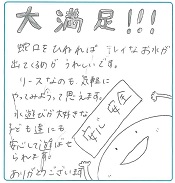 大満足!!!
蛇口をひねれば キレイなお水が
出てくるのが うれしいです。
リースなので、気軽に
やってみようって思えます。
水遊びが大好きな
子ども達にも
安心して遊ばせ
られます。
ありがとうございます
安心 安全